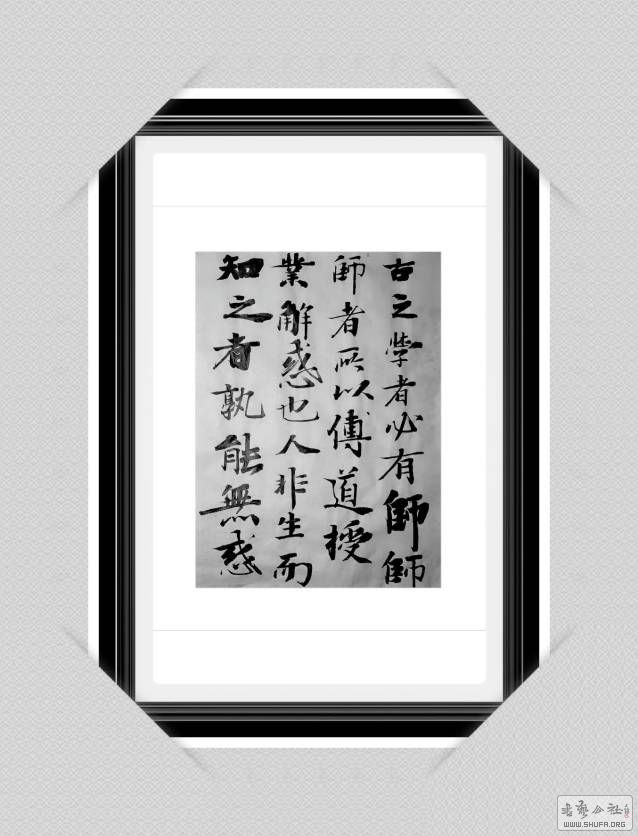 古之學者必有師師
師者所以傳道授
業解惑也人非生而
知之者孰能無惑
書藝公社
WWW.SHUFA.ORG